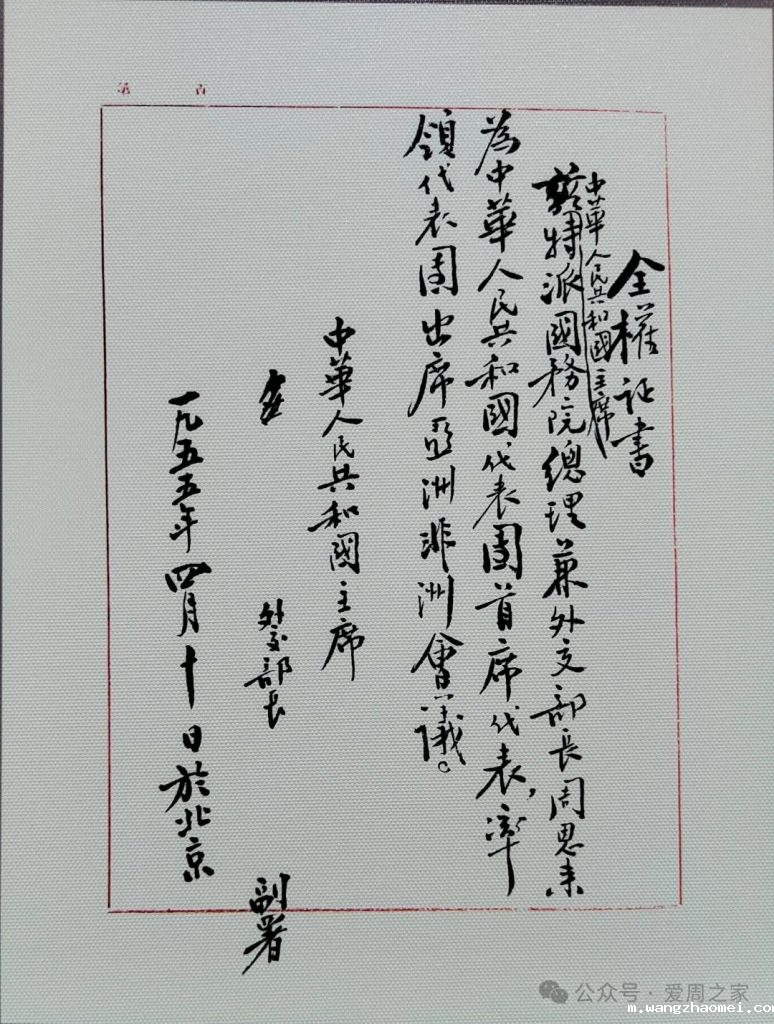 全權证書
中華人民共和國主席
特派國務院總理兼外交部長周恩来
為中華人民共和國代表團首席代表，率
領代表團出席亞洲非洲會議。
中華人民共和國主席
外交部長 副署
一九五五年四月十日於北京
公众号·爱周之家
m.wangzhaomei.com